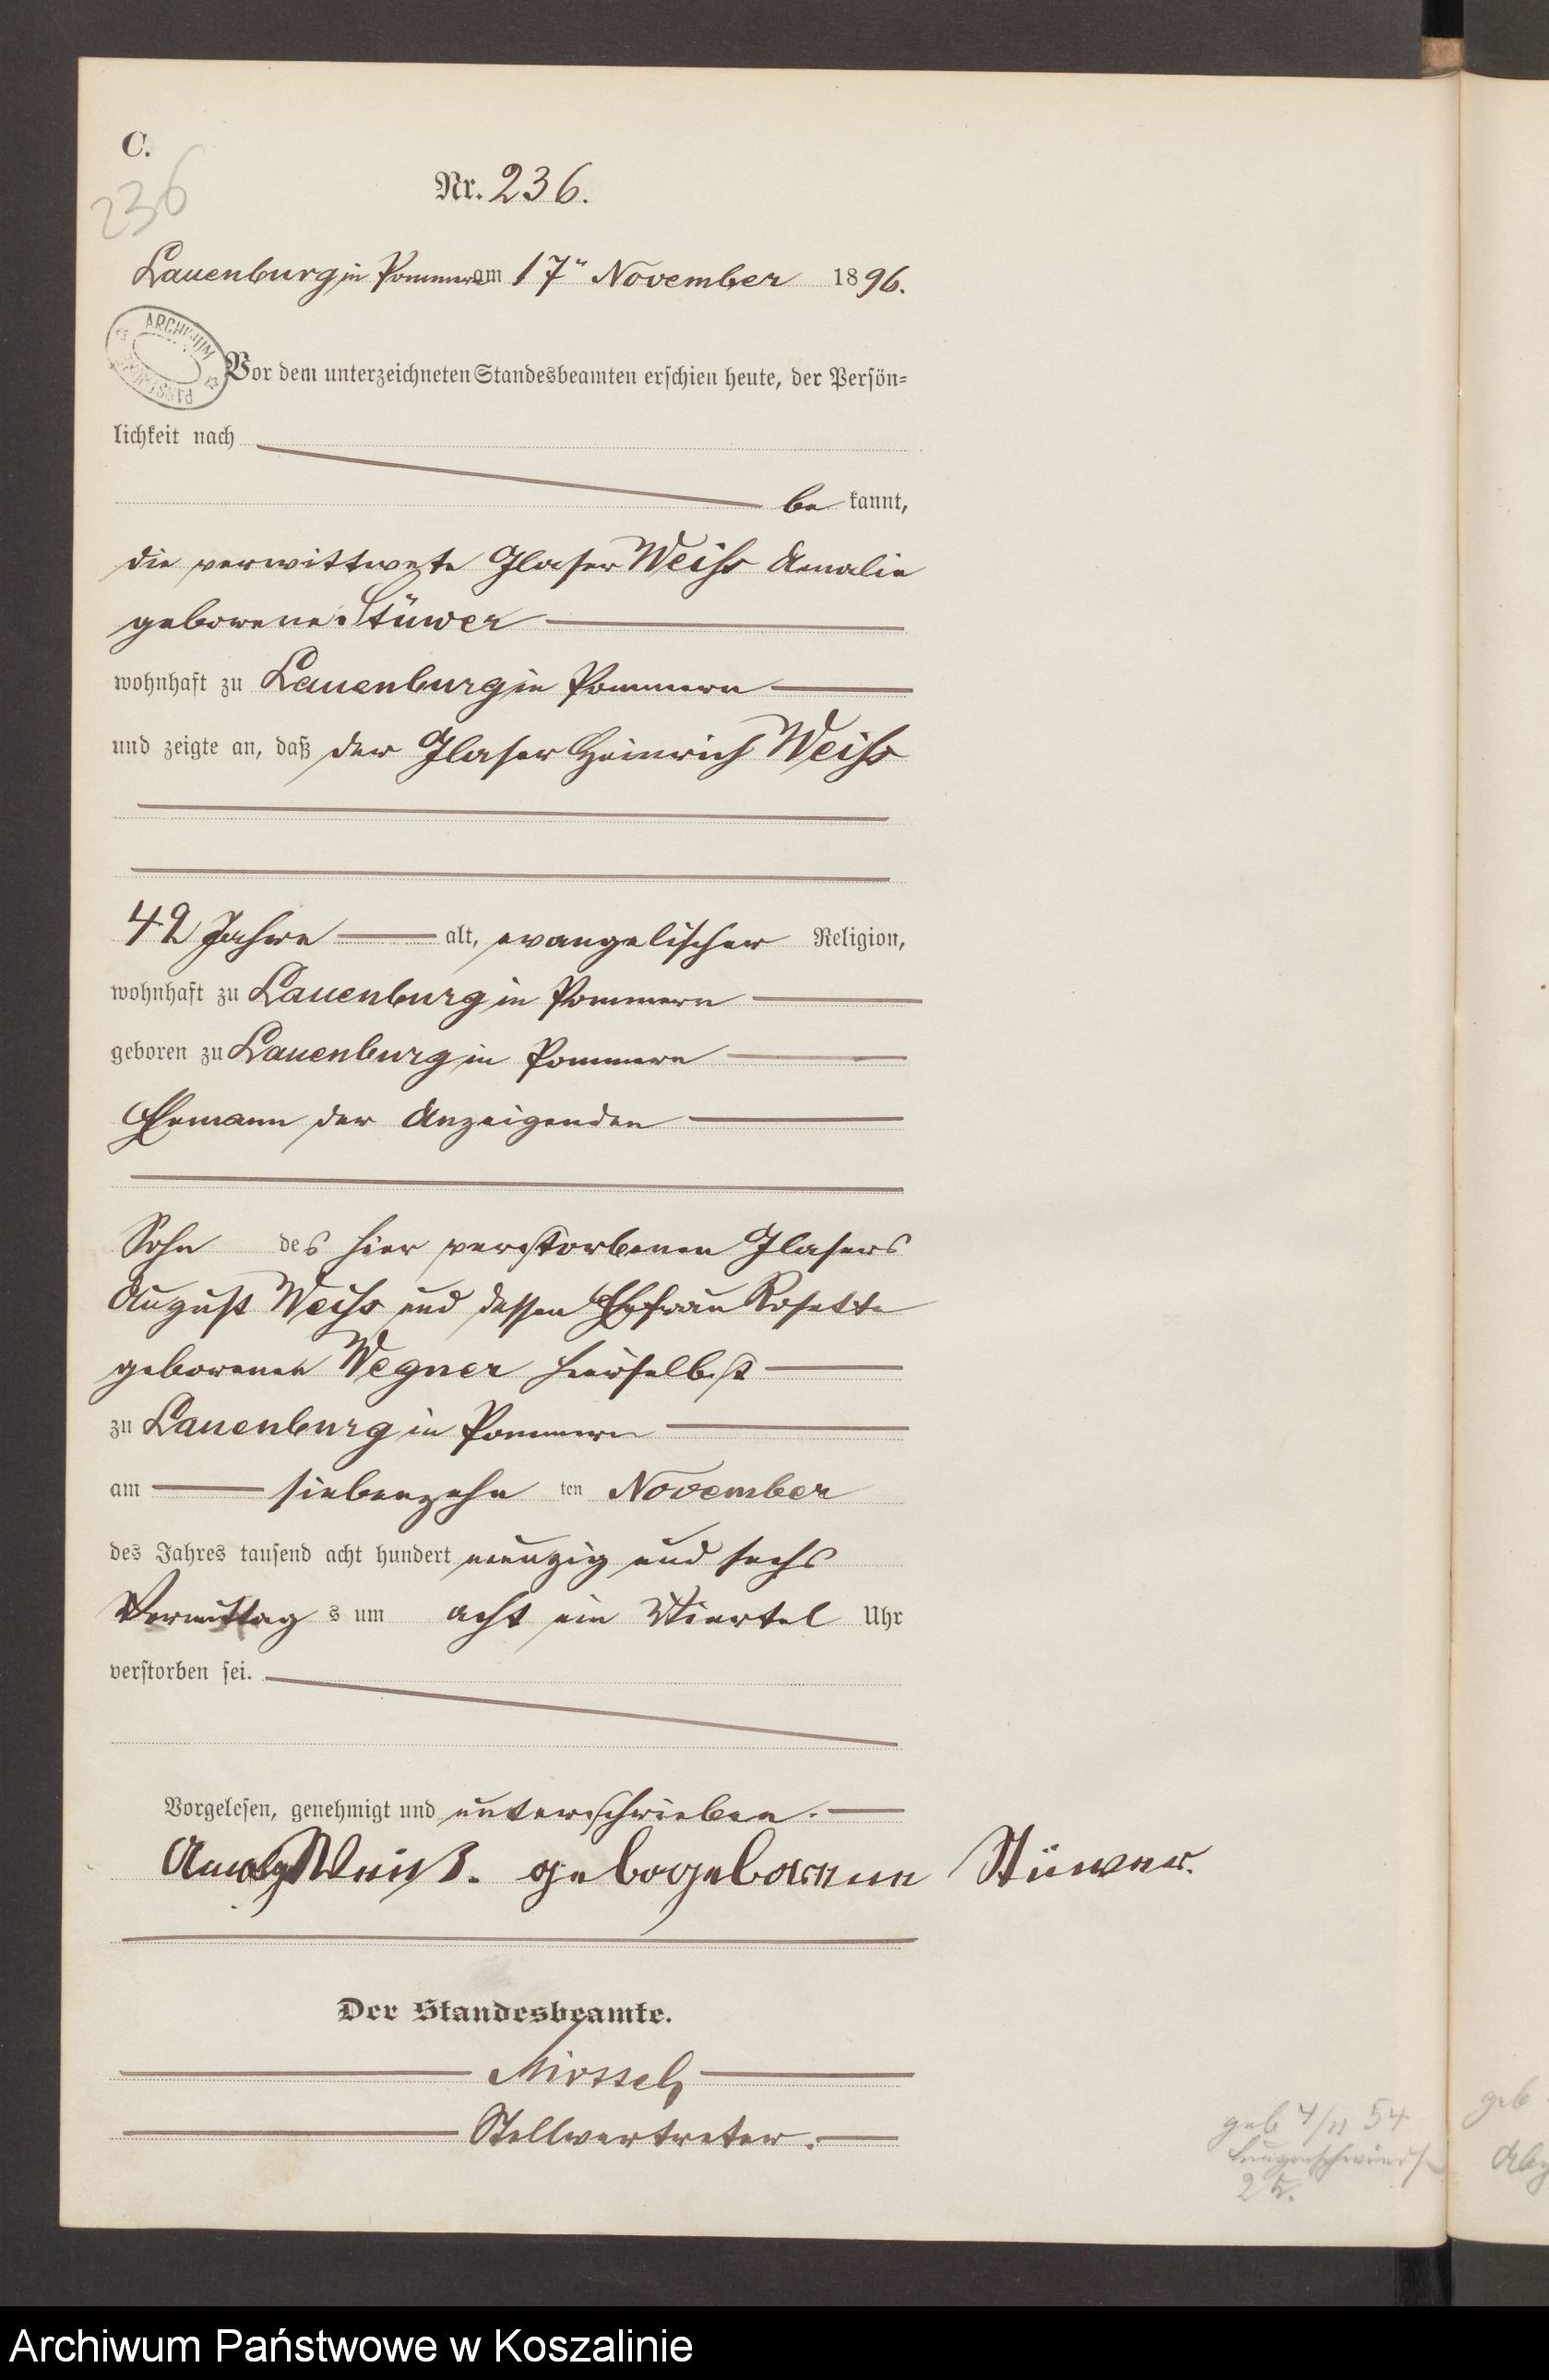 C.
236
Nr. 236.
Lauenburg in Pommern am 17ten November 1896.
ARCHIWUM PAŃSTWOWE
Vor dem unterzeichneten Standesbeamten erschien heute, der Persön=
lichkeit nach
be kannt,
die verwittwete Glaser Weiss Amalie
geborene Stüwer
wohnhaft zu Lauenburg in Pommern
und zeigte an, daß der Glaser Heinrich Weiss
42 Jahre alt, evangelischer Religion,
wohnhaft zu Lauenburg in Pommern
geboren zu Lauenburg in Pommern
Ehemann der Anzeigenden
Sohn des hier verstorbenen Glasers
August Weiss und dessen Ehefrau Rosette
geborenen Wegner hierselbst
zu Lauenburg in Pommern
am siebenzehn ten November
des Jahres tausend acht hundert neunzig und sechs
Vormittag s um acht ein Viertel Uhr
verstorben sei.
Vorgelesen, genehmigt und unterschrieben.
Weiß. gebogeborene Stüwer.
Der Standesbeamte.
Stellvertreter.
geb 4/11 54
Lungenschwinds
25.
geb
Archiwum Państwowe w Koszalinie